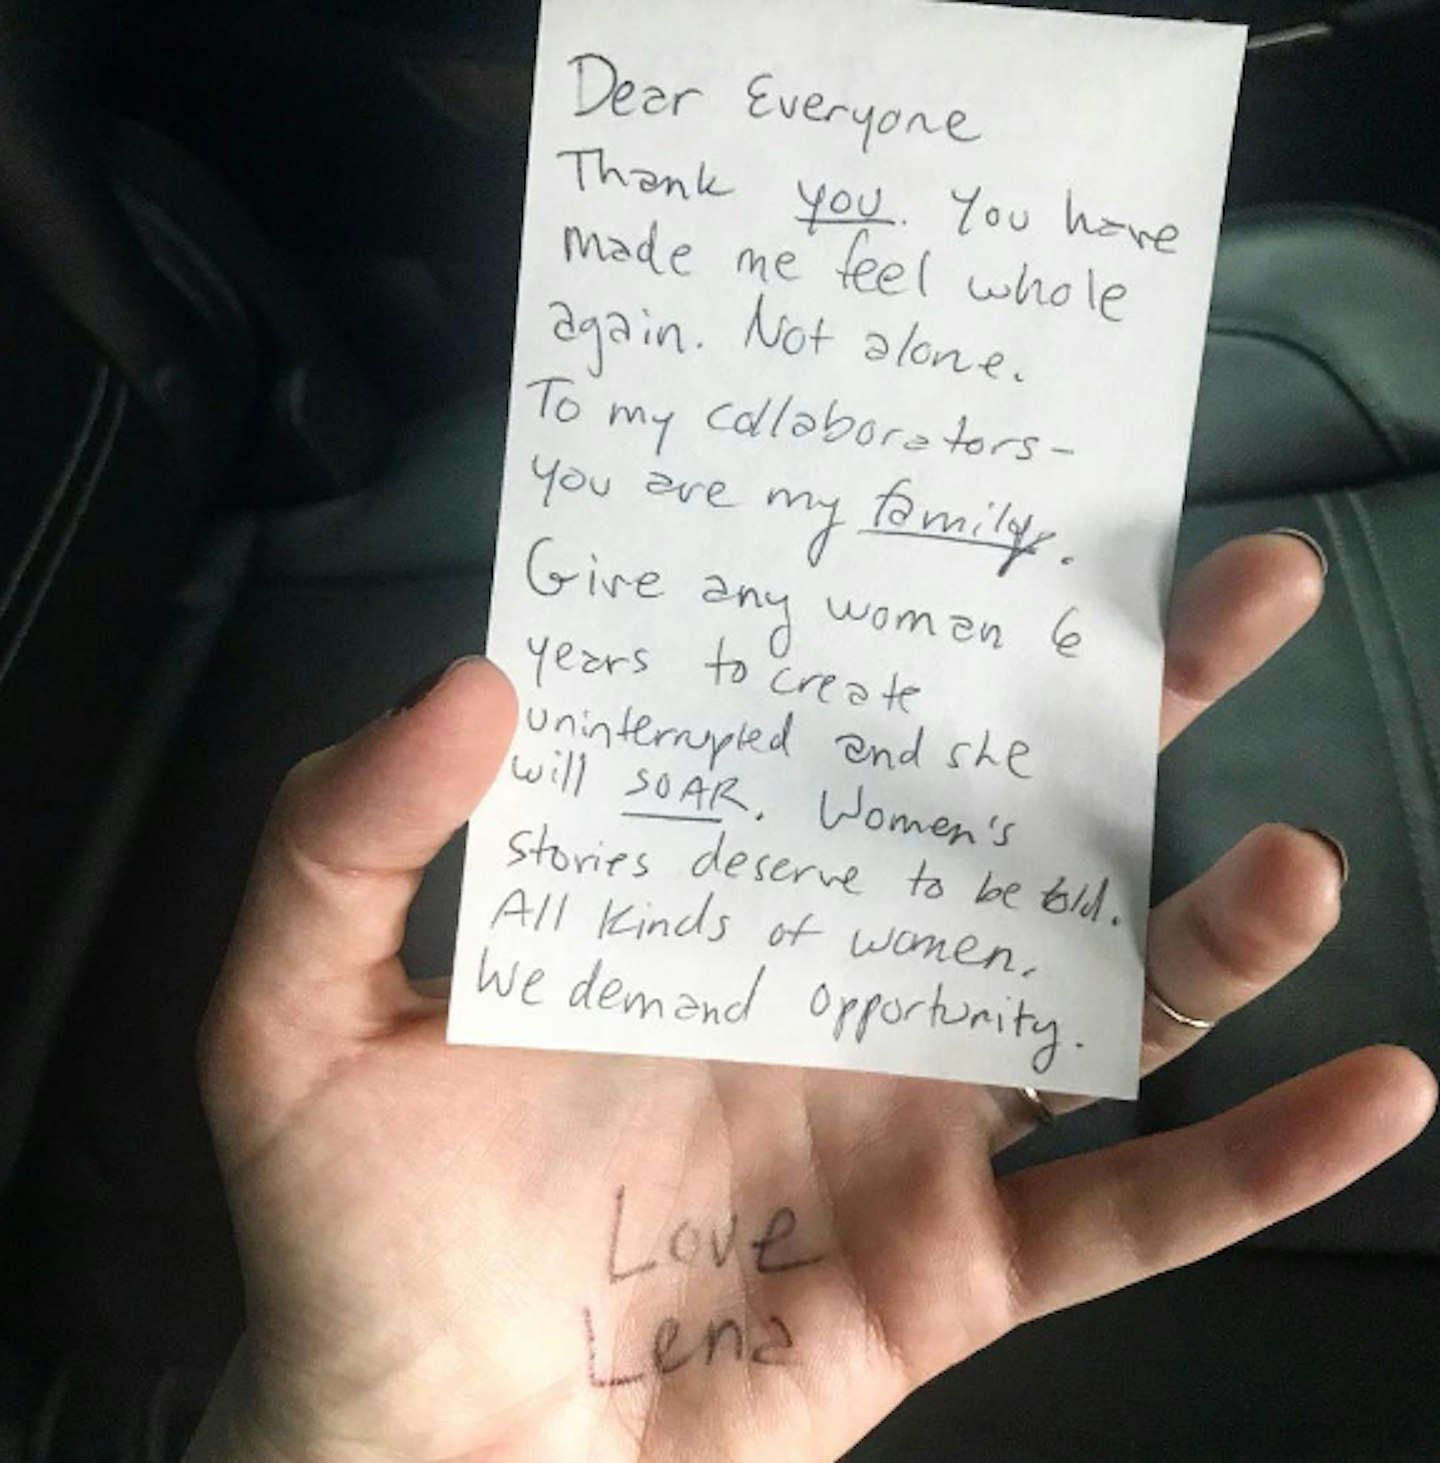 Dear Everyone
Thank you. You have
made me feel whole
again. Not alone.
To my collaborators-
you are my family.
Give any woman 6
years to create
uninterrupted and she
will SOAR. Women's
stories deserve to be told.
All kinds of women.
We demand opportunity.
Love
Lena